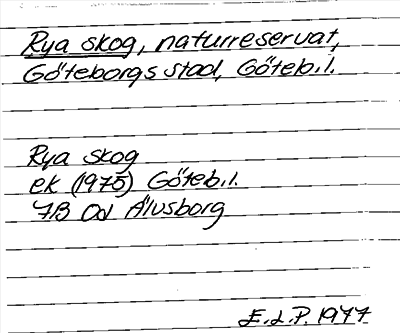 Rya skog, naturreservat,
Göteborgs stad, Göteb.l.
Rya skog
ek (1975) Göteb.l.
7B Od Älvsborg
E.L.P. 1977